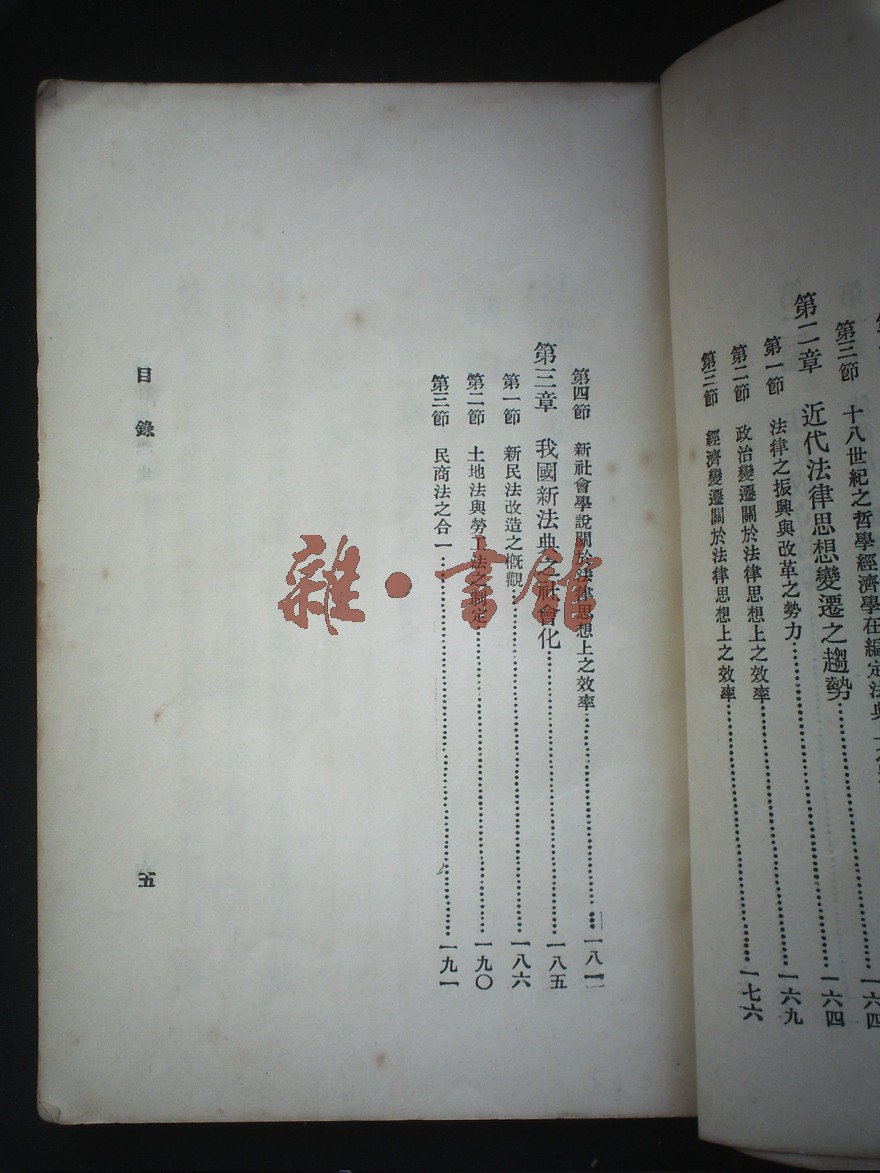 第三節 十八世紀之哲學經濟學在編定法典
第二章 近代法律思想變遷之趨勢……一六四
第一節 法律之振興與改革之勢力……一六四
第二節 政治變遷關於法律思想上之效率……一六九
第三節 經濟變遷關於法律思想上之效率……一七六
第四節 新社會學說關於法律思想上之效率……一八二
第三章 我國新法典之社會化……一八五
第一節 新民法改造之概觀……一八六
第二節 土地法與勞工法之制定……一九〇
第三節 民商法之合一……一九一
目錄
五
雜·書館